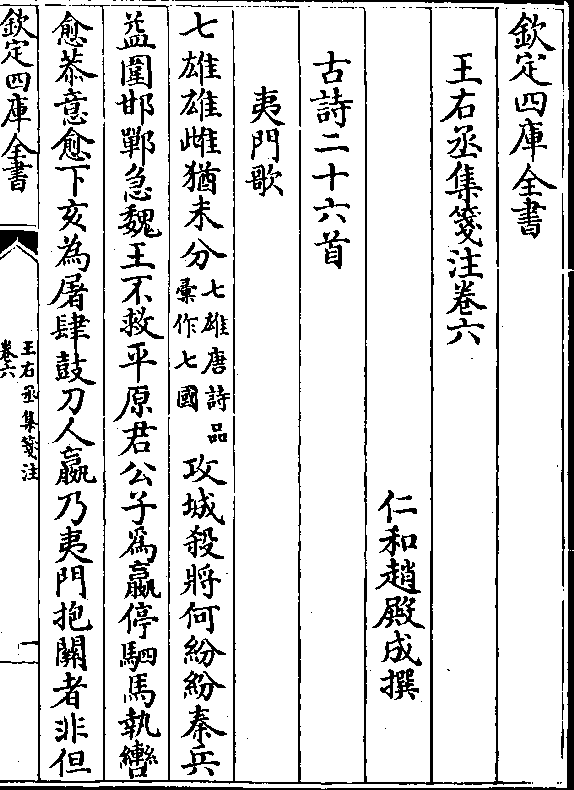 欽定四庫全書
王右丞集箋注卷六
仁和趙殿成撰
古詩二十六首
夷門歌
七雄雄雌猶未分七雄唐詩品彚作七國攻城殺將何紛紛秦兵
益圍邯鄲急魏王不救平原君公子爲嬴停駟馬執轡
愈恭意愈下亥為屠肆鼓刀人嬴乃夷門抱關者非但
欽定四庫全書
王右丞集箋注
卷六
一